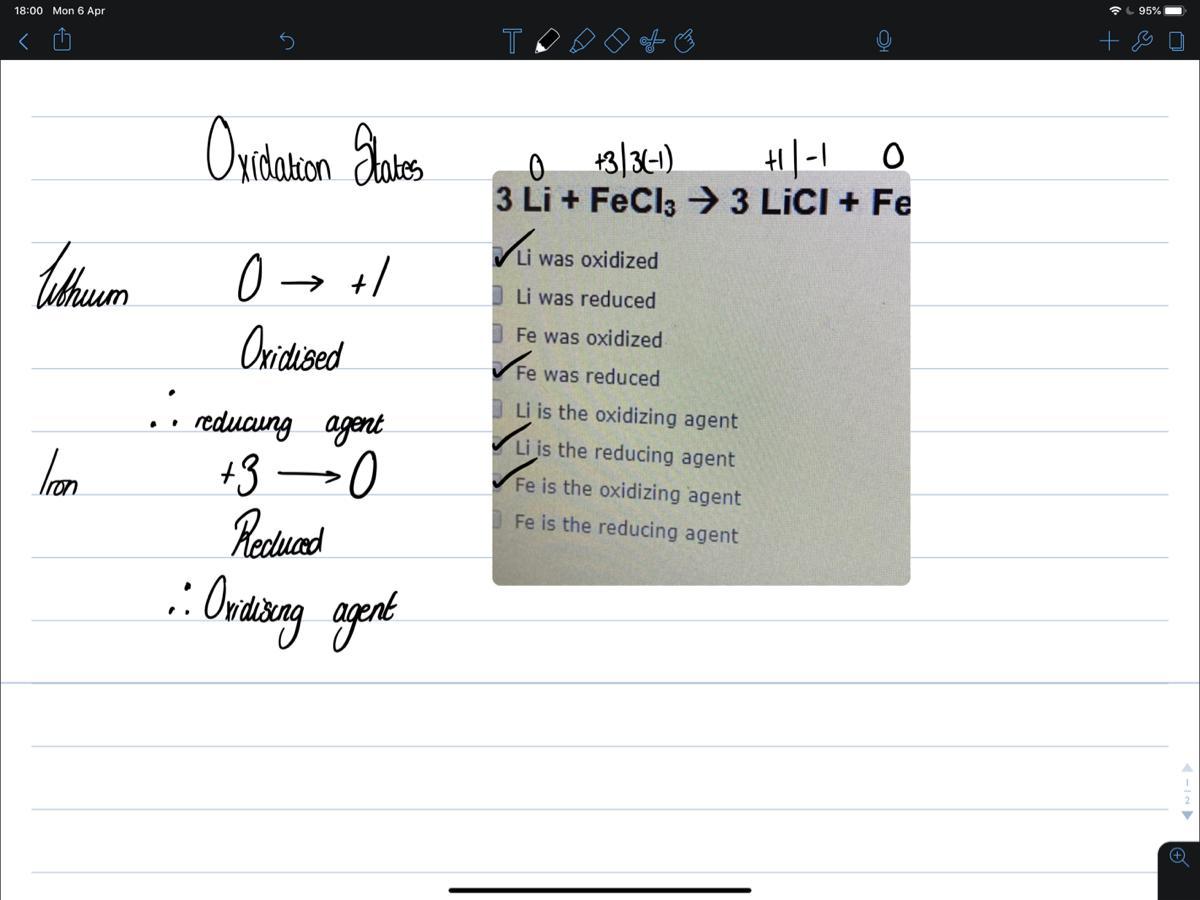 18:00 Mon 6 Apr
95%
T
Oxidation States
0 +3|3(-1) +1|-1 0
3 Li + FeCl₃ → 3 LiCl + Fe
Li was oxidized
Li was reduced
Fe was oxidized
Fe was reduced
Li is the oxidizing agent
Li is the reducing agent
Fe is the oxidizing agent
Fe is the reducing agent
Lithium 0 → +1
Oxidised
∴ reducing agent
Iron +3 → 0
Reduced
∴ Oxidising agent
1
2